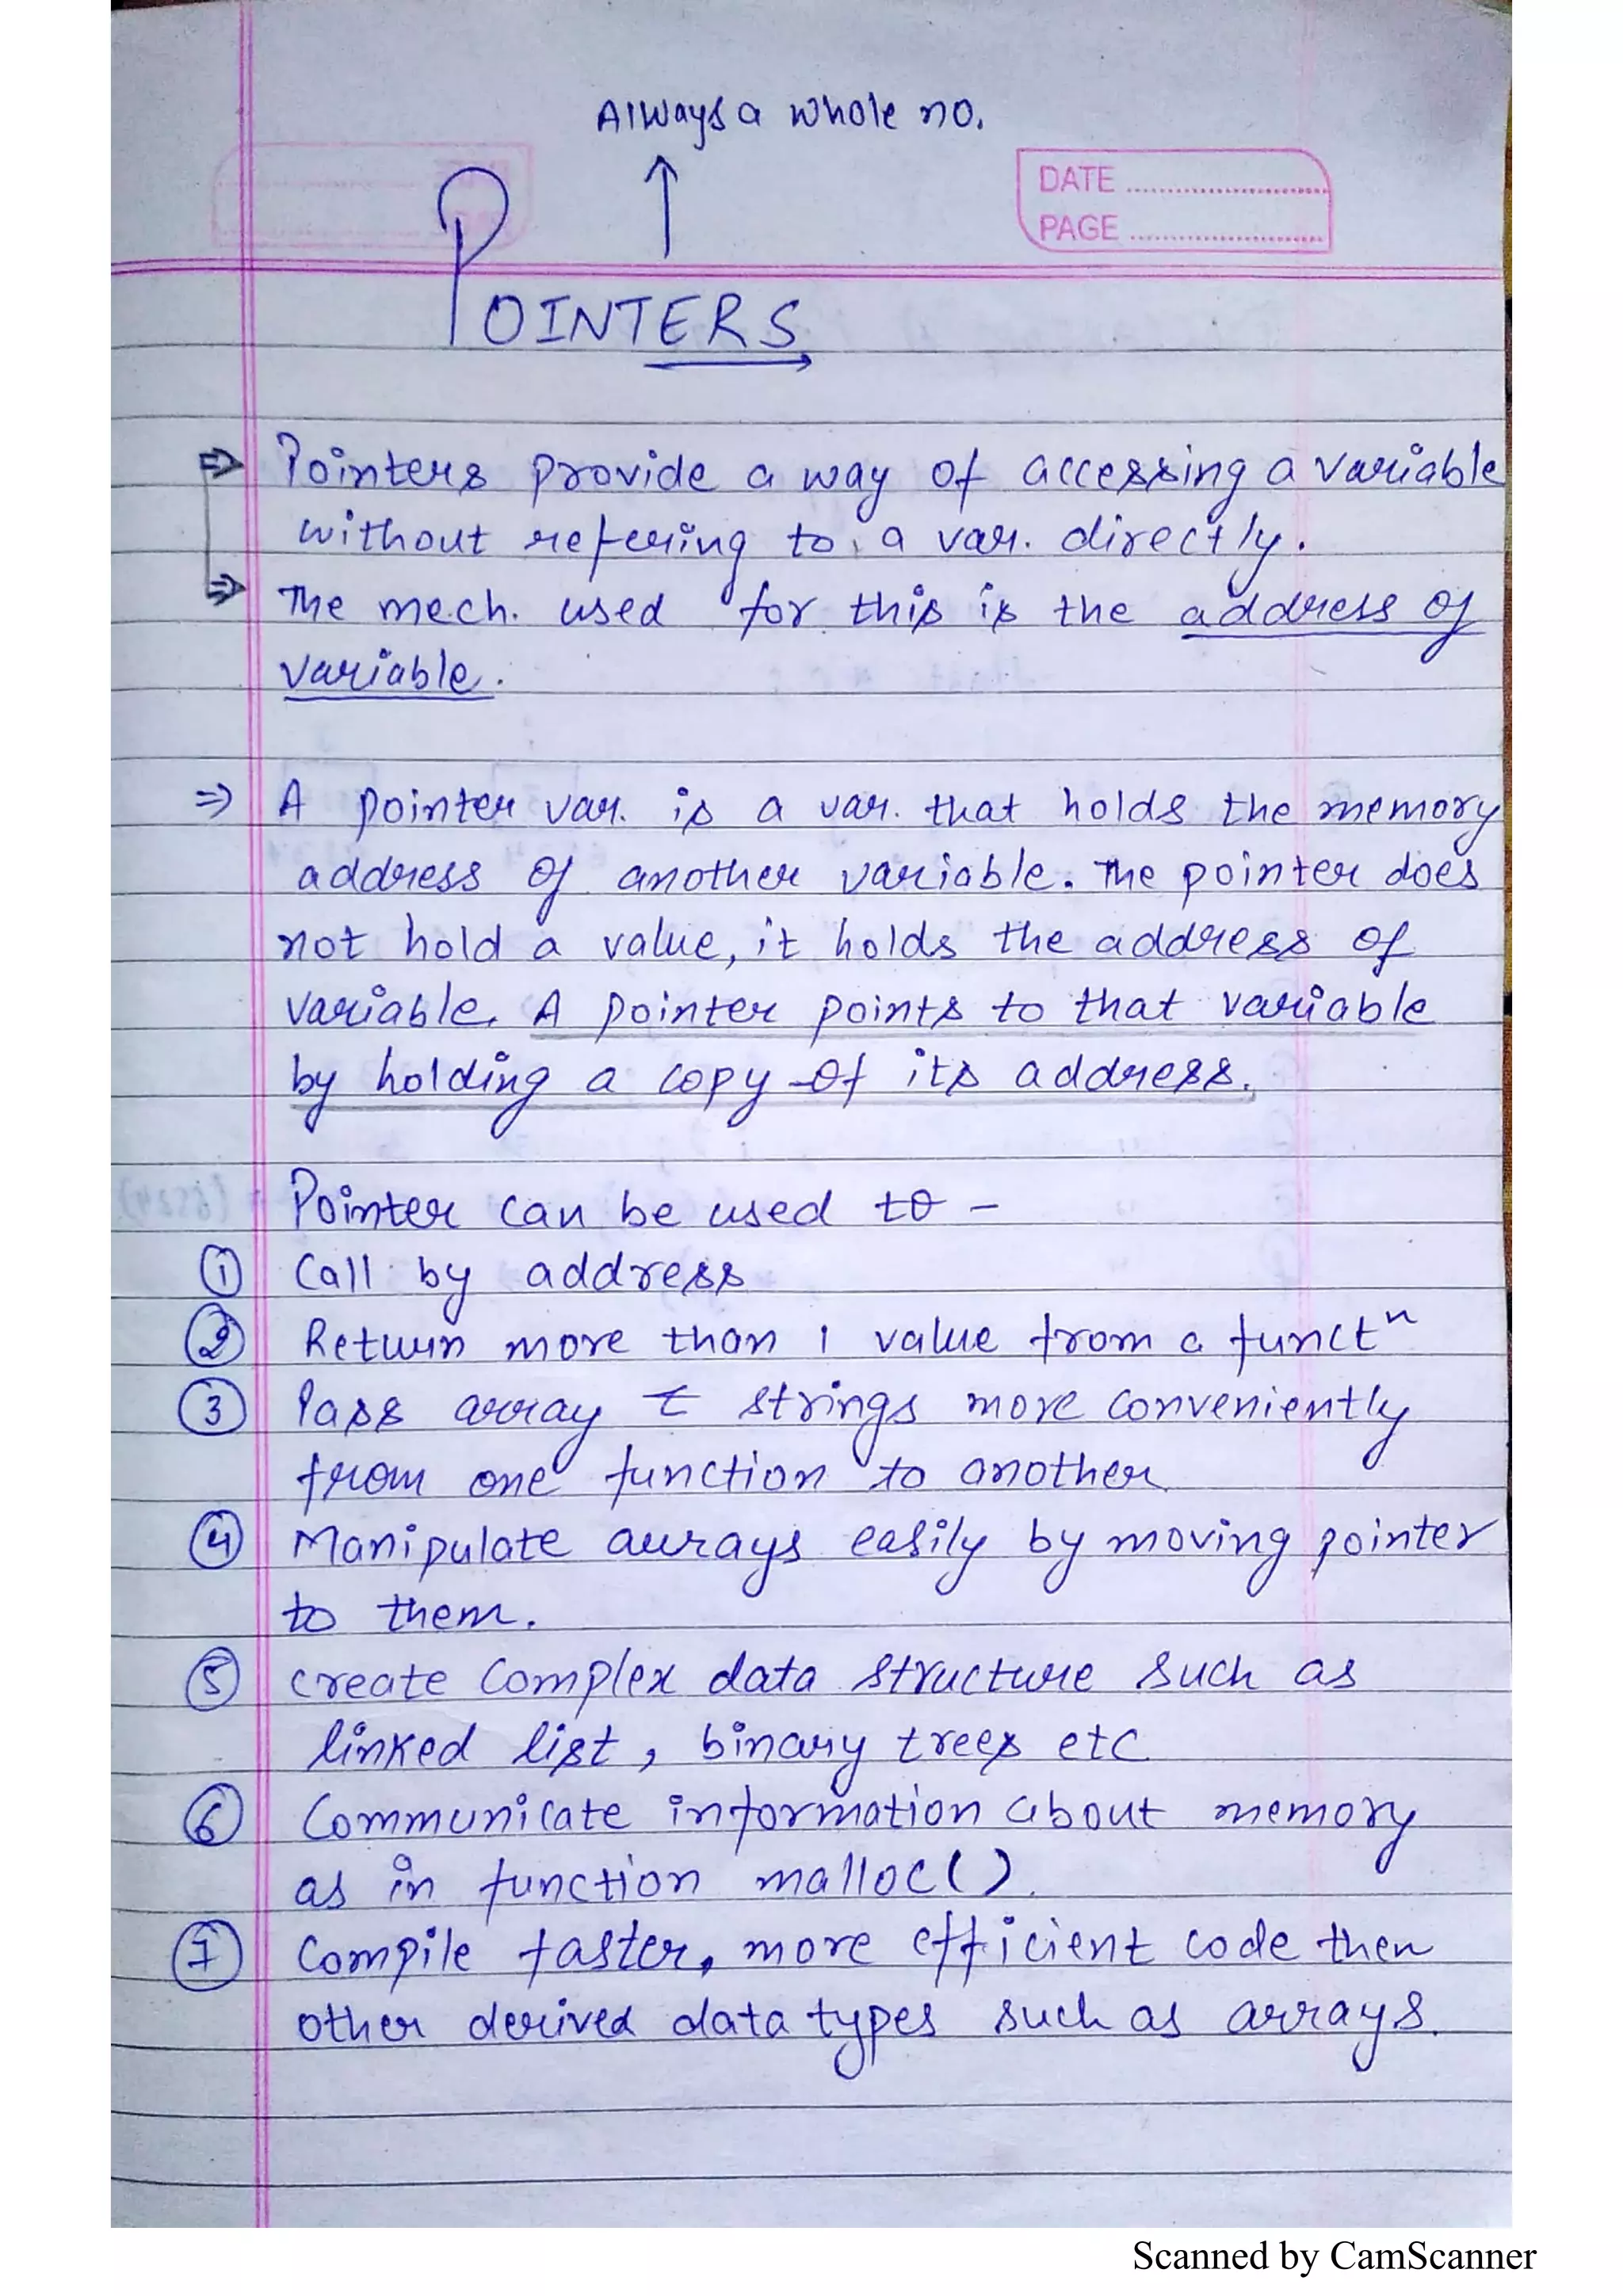 Always a whole no.
DATE
PAGE
POINTERS
⇒ Pointers provide a way of accessing a variable
without refering to a var. directly.
⇒ The mech. used for this is the address of
variable.
⇒ A pointer var. is a var. that holds the memory
address of another variable. The pointer does
not hold a value, it holds the address of
variable. A pointer points to that variable
by holding a copy of its address.
Pointer can be used to -
① Call by address
② Return more than 1 value from a functⁿ
③ Pass array & strings more conveniently
from one function to another
④ Manipulate arrays easily by moving pointer
to them.
⑤ create complex data structure such as
linked list, binary trees etc
⑥ Communicate information about memory
as in function malloc().
⑦ Compile faster, more efficient code then
other derived data types such as arrays.
Scanned by CamScanner